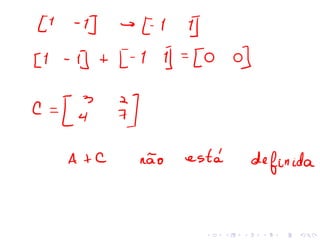 [1 -1] → [-1 1]
[1 -1] + [-1 1] = [0 0]
C = [3 2
4 7]
A + C não está definida